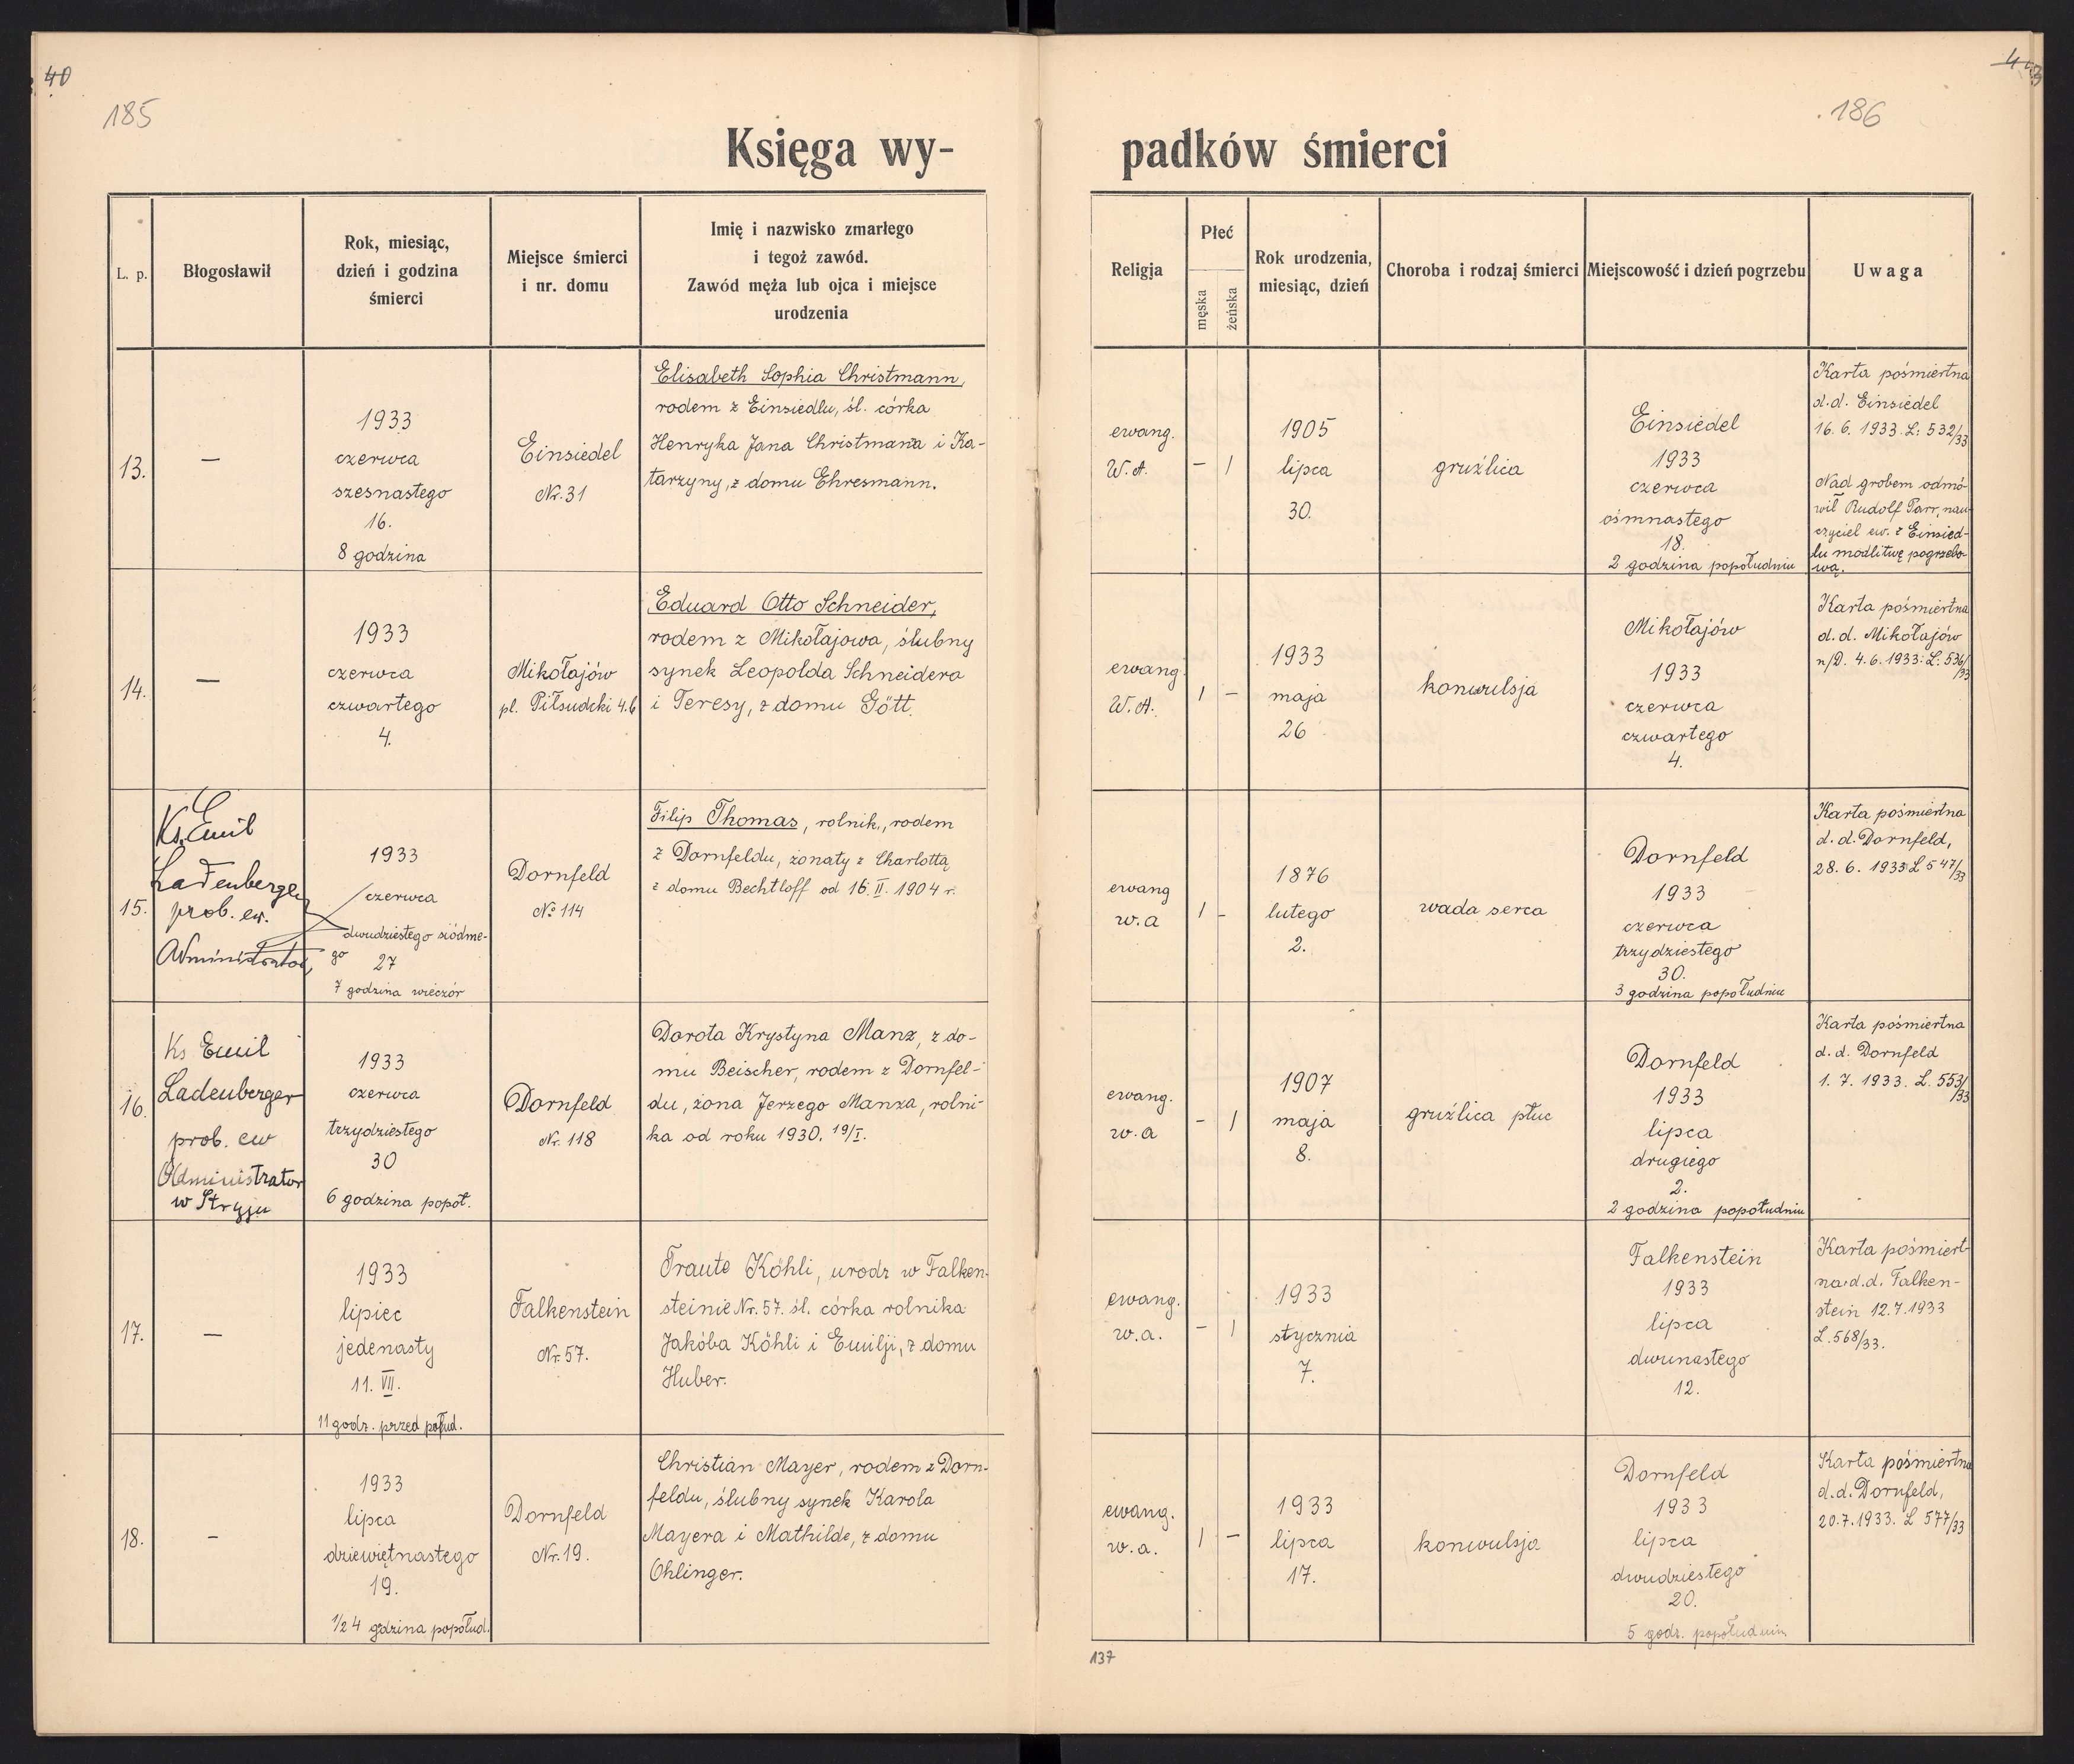 40
185
186
Księga wy-
padków śmierci
L. p.
Błogosławił
Rok, miesiąc,
dzień i godzina
śmierci
Miejsce śmierci
i nr. domu
Imię i nazwisko zmarłego
i tegoż zawód.
Zawód męża lub ojca i miejsce
urodzenia
Religja
Płeć
męska
żeńska
Rok urodzenia,
miesiąc, dzień
Choroba i rodzaj śmierci
Miejscowość i dzień pogrzebu
Uwaga
13.
—
1933
czerwca
szesnastego
16.
8 godzina
Einsiedel
Nr. 31
Elisabeth Sophia Christmann,
rodem z Einsiedlu, śl. córka
Henryka Jana Christmana i Ka-
tarzyny, z domu Ehresmann.
ewang.
W.A.
— 1
1905
lipca
30.
gruźlica
Einsiedel
1933
czerwca
ośmnastego
18.
2 godzina popołudniu
Karta pośmiertna
d.d. Einsiedel
16. 6. 1933. L: 532/33
Nad grobem odmó-
wił Rudolf Parr, nau-
czyciel ew. z Einsied-
lu modlitwę pogrzebo-
wą.
14.
—
1933
czerwca
czwartego
4.
Mikołajów
pl. Piłsudcki 4.b
Eduard Otto Schneider,
rodem z Mikołajowa, ślubny
synek Leopolda Schneidera
i Teresy, z domu Gött.
ewang.
W.A.
1 —
1933
maja
26
konwulsja
Mikołajów
1933
czerwca
czwartego
4.
Karta pośmiertna
d.d. Mikołajów
n/D. 4.6.1933: L. 536/33
15.
Ks. Emil
Ladenberger
prob. ew.
Administrator
1933
czerwca
dwudziestego siódme-
go 27
7 godzina wieczór
Dornfeld
No 114
Filip Thomas, rolnik, rodem
z Dornfeldu, żonaty z Charlottą
z domu Bechtloff od 16. II. 1904 r.
ewang
w.a
1 -
1876
lutego
2.
wada serca
Dornfeld
1933
czerwca
trzydziestego
30.
3 godzina popołudniu
Karta pośmiertna
d.d. Dornfeld,
28. 6. 1933 L 547/33
16.
Ks Emil
Ladenberger
prob. ew
Administrator
w Stryju
1933
czerwca
trzydziestego
30
6 godzina popoł.
Dornfeld
Nr. 118
Dorota Krystyna Manz, z do-
mu Beischer, rodem z Dornfel-
du, żona Jerzego Manza, rolni-
ka od roku 1930. 19/I.
ewang.
w.a
- 1
1907
maja
8.
gruźlica płuc
Dornfeld
1933
lipca
drugiego
2.
2 godzina popołudniu
Karta pośmiertna
d.d. Dornfeld
1. 7. 1933. L. 553/33
17.
—
1933
lipiec
jedenasty
11. VII.
11 godz. przed połud.
Falkenstein
Nr. 57.
Traute Köhli, urodz w Falken-
steinie Nr. 57. śl. córka rolnika
Jakóba Köhli i Emilji, z domu
Huber.
ewang.
w.a.
- 1
1933
stycznia
7.
Falkenstein
1933
lipca
dwunastego
12.
Karta pośmiert-
na d.d. Falken-
stein 12.7.1933
L. 568/33.
18.
-
1933
lipca
dziewiętnastego
19.
1/2 4 godzina popołud.
Dornfeld
Nr. 19.
Christian Mayer, rodem z Dorn-
feldu, ślubny synek Karola
Mayera i Mathilde, z domu
Ohlinger.
ewang.
w.a.
1 —
1933
lipca
17.
konwulsja
Dornfeld
1933
lipca
dwudziestego
20.
5 godz. popołudniu
Karta pośmiertna
d.d. Dornfeld,
20.7.1933. L 577/33
137